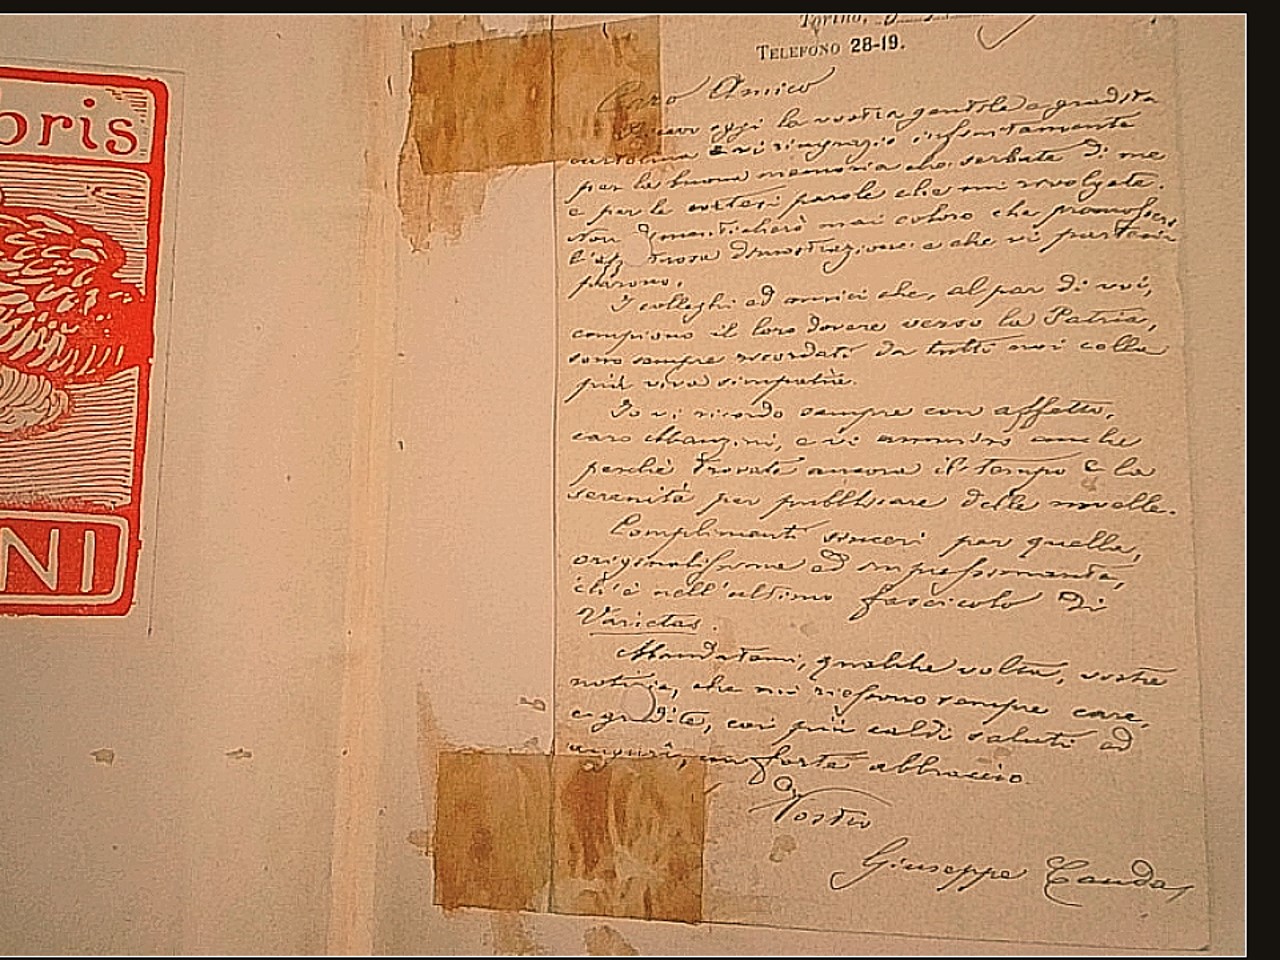 bris
NI
Torino,
TELEFONO 28-19.
Caro Amico
Ricevo oggi la vostra gentile e gradita
cartolina e vi ringrazio infinitamente
per la buona memoria che serbate di me
e per le cortesi parole che mi rivolgete.
Non dimenticherò mai coloro che promossero
dimostrazione e che vi parteci
parono.
I colleghi ed amici che, al par di voi,
compiono il loro dovere verso la Patria,
sono sempre ricordati da tutti noi colla
più viva simpatia.
Io vi ricordo sempre con affetto,
caro Manzini, e vi ammiro anche
perchè trovate ancora il tempo e la
serenità per pubblicare delle novelle.
Complimenti sinceri per quella,
originalissima ed impressionante,
ch'è nell'ultimo fascicolo di
Varietas.
Mandatemi, qualche volta, vostre
notizie, che mi riescono sempre care,
e gradite, coi più caldi saluti ed
augurî, un forte abbraccio
Vostro
Giuseppe